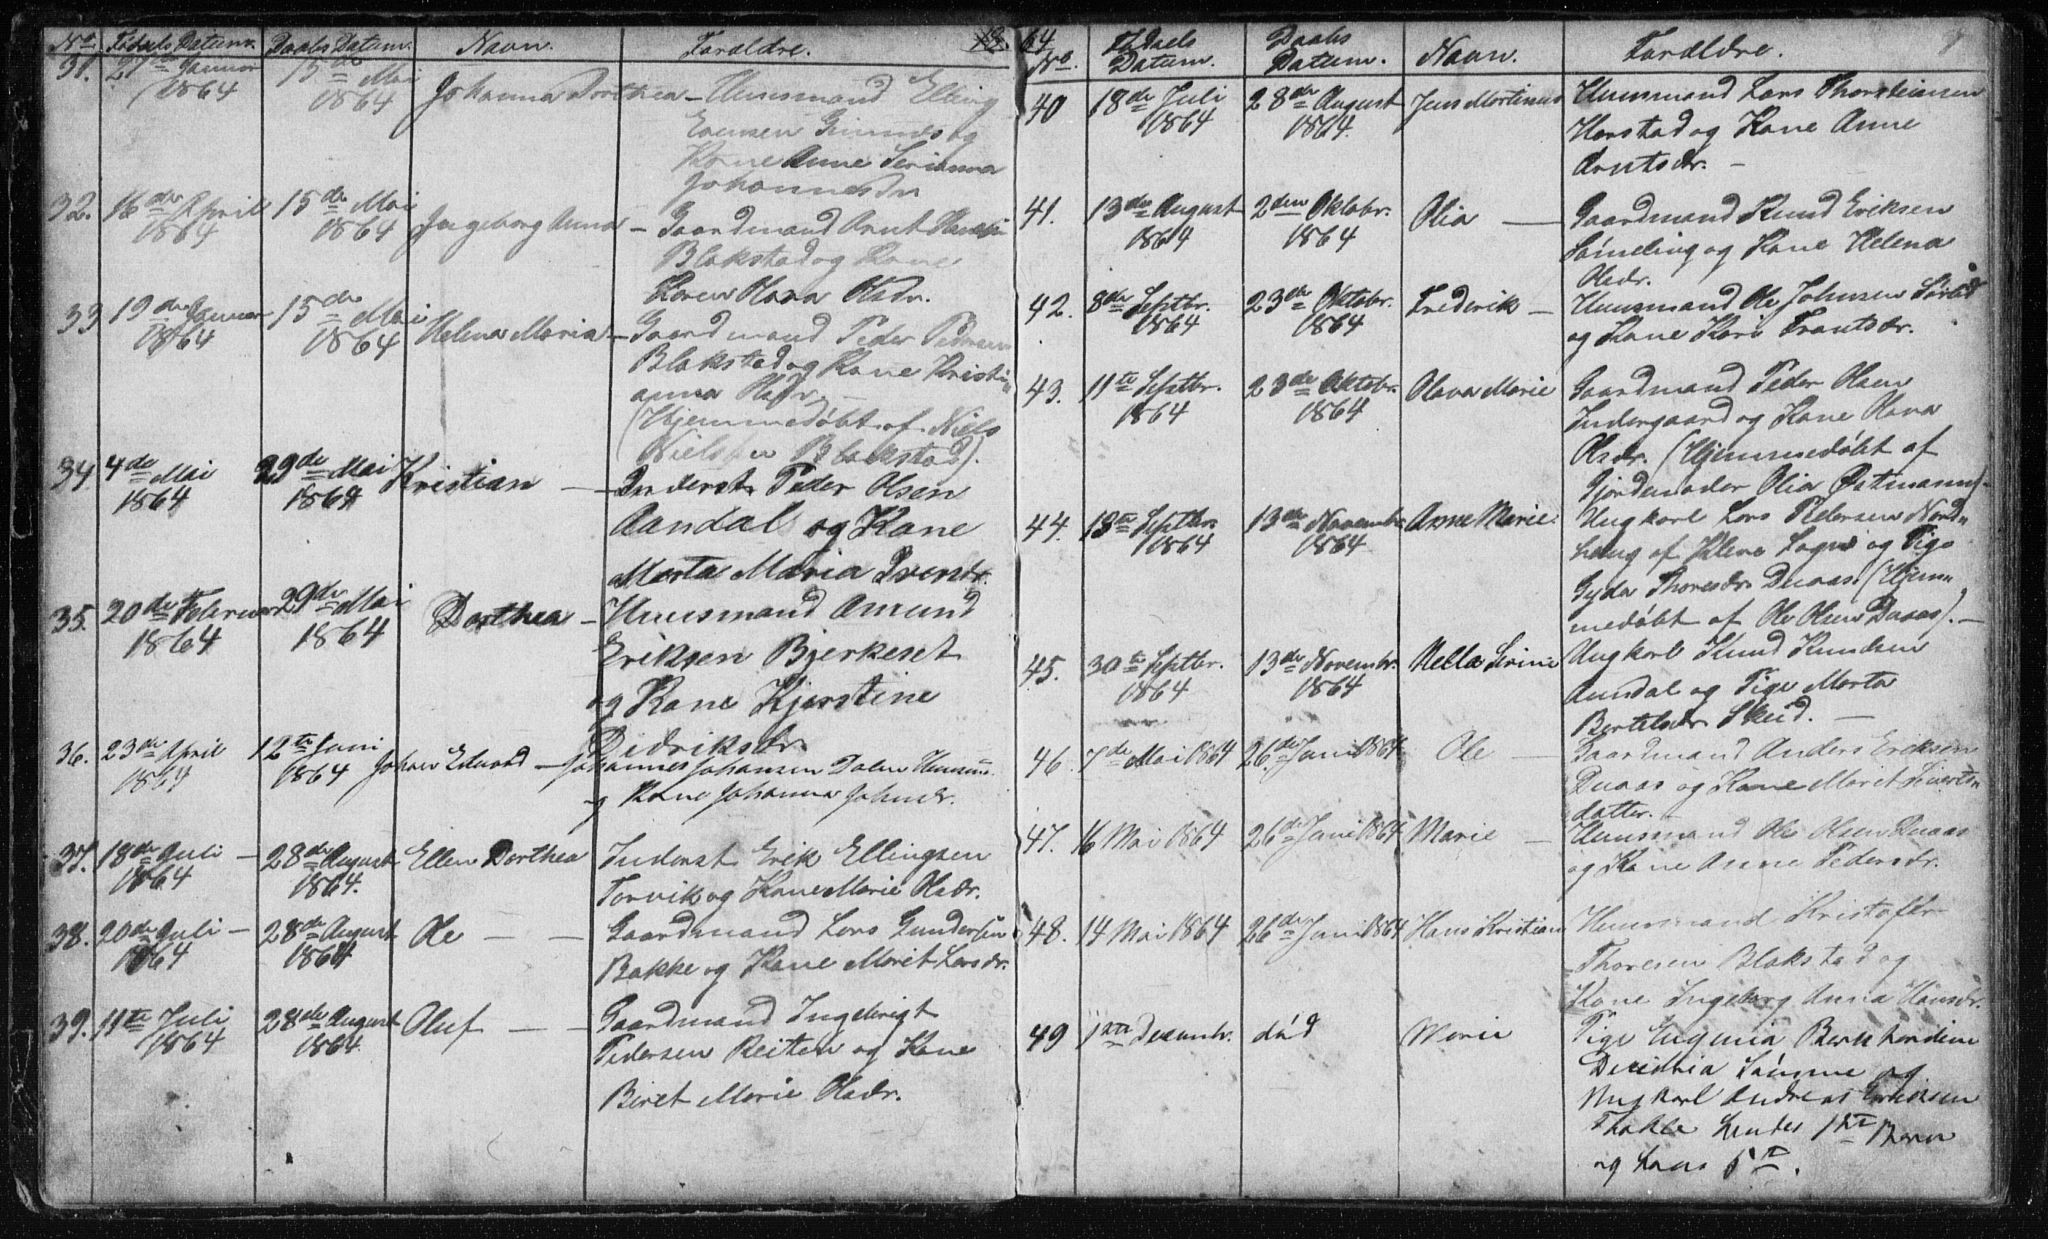 No. Fødsels Datum. Daabs Datum. Navn. Forældre. 18
31. 27de Januar 1864 15de Mai 1864 Johanna Dorthea – Huusmand Elling
Evensen og
Kone Anne Serianna
Johannesdr.
32. 16de April 1864 15de Mai 1864 Ingeborg Anna – Gaardmand Arnt Hansen
Blakstad og Kone
Karen Olava Olsdr.
33 19de Januar 1864 15de Mai 1864 Helena Maria – Gaardmand Peder Pedersen
Blakstad og Kone Kristi„
anna Olsdr. –
(Hjemmedøbt af Niels
Nielsen Blakstad).
34. 4de Mai 1864 29de Mai 1864 Kristian – Inderst Peder Olsen
Aandal og Kone
Marta Maria Iversdr.
35. 20de Februar 1864 29de Mai 1864 Dorthea – Huusmand Amund
Eriksen Bjerkeset
og Kone Kjerstine
Didriksdr.
36. 23de April 1864 12te Juni 1864 Johan Edvard – Johannes Johansen Dalen Huusm.
og Kone Johanna Johnsdr.
37. 18de Juli – 1864 28de August 1864. Ellen Dorthea Inderst Erik Ellingsen
Torvik og Kone Marie Olsdr.
38. 20de Juli – 1864 28de August 1864 Ole – – Gaardmand Lars Gundersen
Bakke og Kone Marit Larsdr.
39. 11te Juli 1864 28de August 1864. Oluf – – Gaardmand Ingebrigt
Pedersen Reiten og Kone
Beret Marie Olsdr.
64
No. Fødsels Datum. Daabs Datum. Navn. Forældre.
40 18de Juli 1864 28de August 1864. Jens Martinus Huusmand Lars Thorsteinsen
Harstad og Kone Anne
Arntsdr. –
41. 13de August 1864 2den Oktobr. 1864 Olia – Gaardmand Knud Eriksen
og Kone Helena
Olsdr.
42. 8de Septbr. 1864 23de Oktobr. 1864 Frederik – Huusmand Ole Johnsen
og Kone Kari Frantsdr.
43. 11te Septbr. 1864 23de Oktobr. 1864 Olava Marie Gaardmand Peder Olsen
Indergaard og Kone Olava
Olsdr. (Hjemmedøbt af
Gjordemoder Olia Østmanns). –
44. 18te Septbr. 1864 13de Novembr. 1864 Anne Marie. Ungkarl Lars Pedersen Nord„
haug af Kleve Sogn og Pige
Gyda Thoresdr. Duaas. (Hjem„
medøbt af Ole Olsen Duaas). –
45. 30te Septbr. 1864 13de Novembr. 1864 Nella Serine Ungkarl Knud Knudsen
Aandal og Pige Marta
Bertelsdr. Skeid. –
46. 7de Mai 1864 26de Juni 1864 Ole – Gaardmand Anders Eriksen
Duaas og Kone Marit Siverts„
datter. –
47. 16 Mai 1864 26de Juni 1864 Marie – Huusmand Ole Olsen Duaas
og Kone Anne Pedersdr.
48. 14 Mai 1864 26de Juni 1864 Hans Kristian Huusmand Kristofer
Thoresen Blakstad og
Kone Ingeborg Anna Hansdr.
49 1ste Decembr. død Marie Pige Eugenia Bernhardine
og
Ungkarl Andreas Eriksen
1ste Barn
og Lars